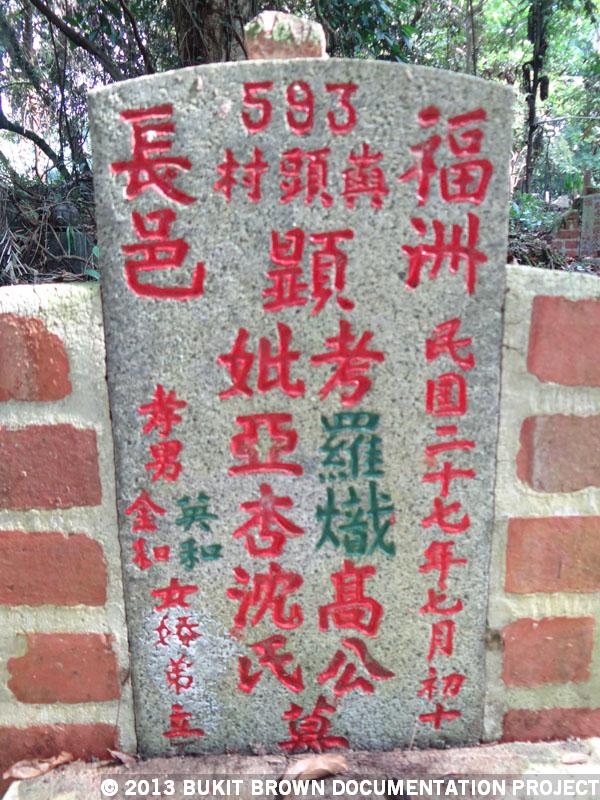 593
嶼頭村
福洲
民国二十七年七月初十
顯
考羅熾高公
妣亞杏沈氏
墓
長邑
孝男
英和
金和
女
弟立
© 2013 BUKIT BROWN DOCUMENTATION PROJECT